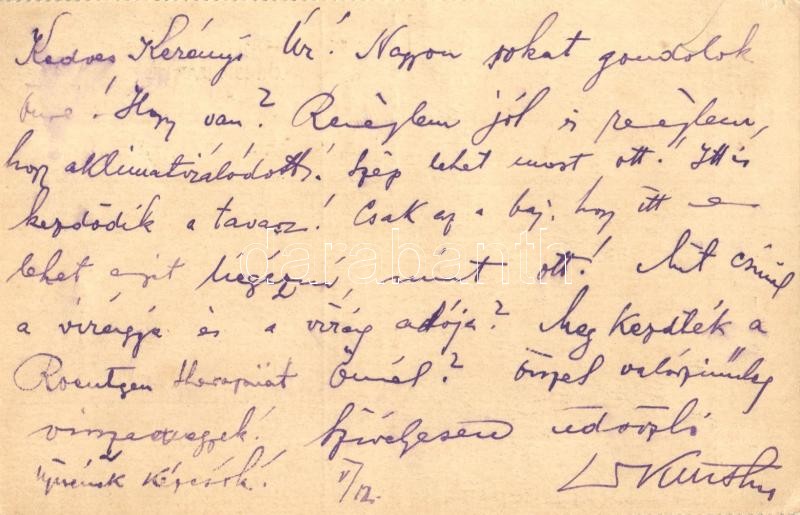 Kedves Kerényi Úr! Nagyon sokat gondolok
Önre! Hogy van? Remélem jól is remélem,
hogy aklimatizálódott! Szép lehet most ott! Itt is
kezdődik a tavasz! Csak az a baj, hogy itt
lehet mint ott! Mit csinál
a virágja és a virág adója? Meg kezdték a
Roentgen therapiát Önnél? Ősszel valószinűleg
visszamegyek! Szivélyesen üdvözli
V/12.